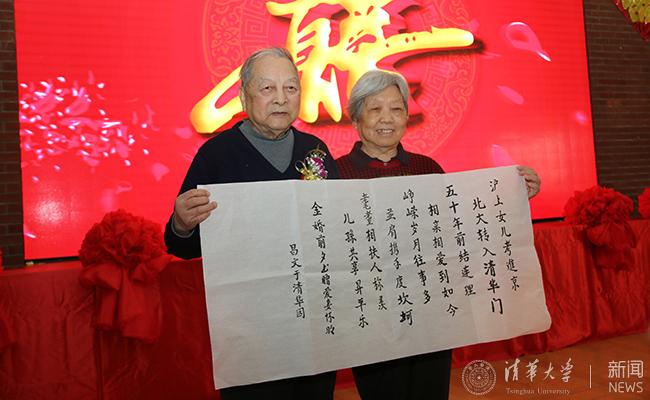 沪上女儿考進京
北大转入清华门
五十年前结连理
相亲相爱到如今
峥嵘岁月往事多
並肩携手度坎坷
耄耋相扶人称羡
儿孫共享昇平乐
金婚前夕书赠爱妻
昌文于清华园
清华大学
Tsinghua University
新闻
NEWS